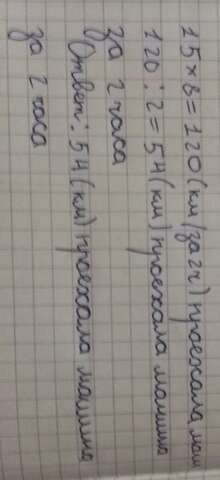 15 × 8 = 120 (км/за 2ч) проехала маш
120 : 2 = 54 (км) проехала машина
за 2 часа
Ответ: 54 (км) проехала машина
за 2 часа